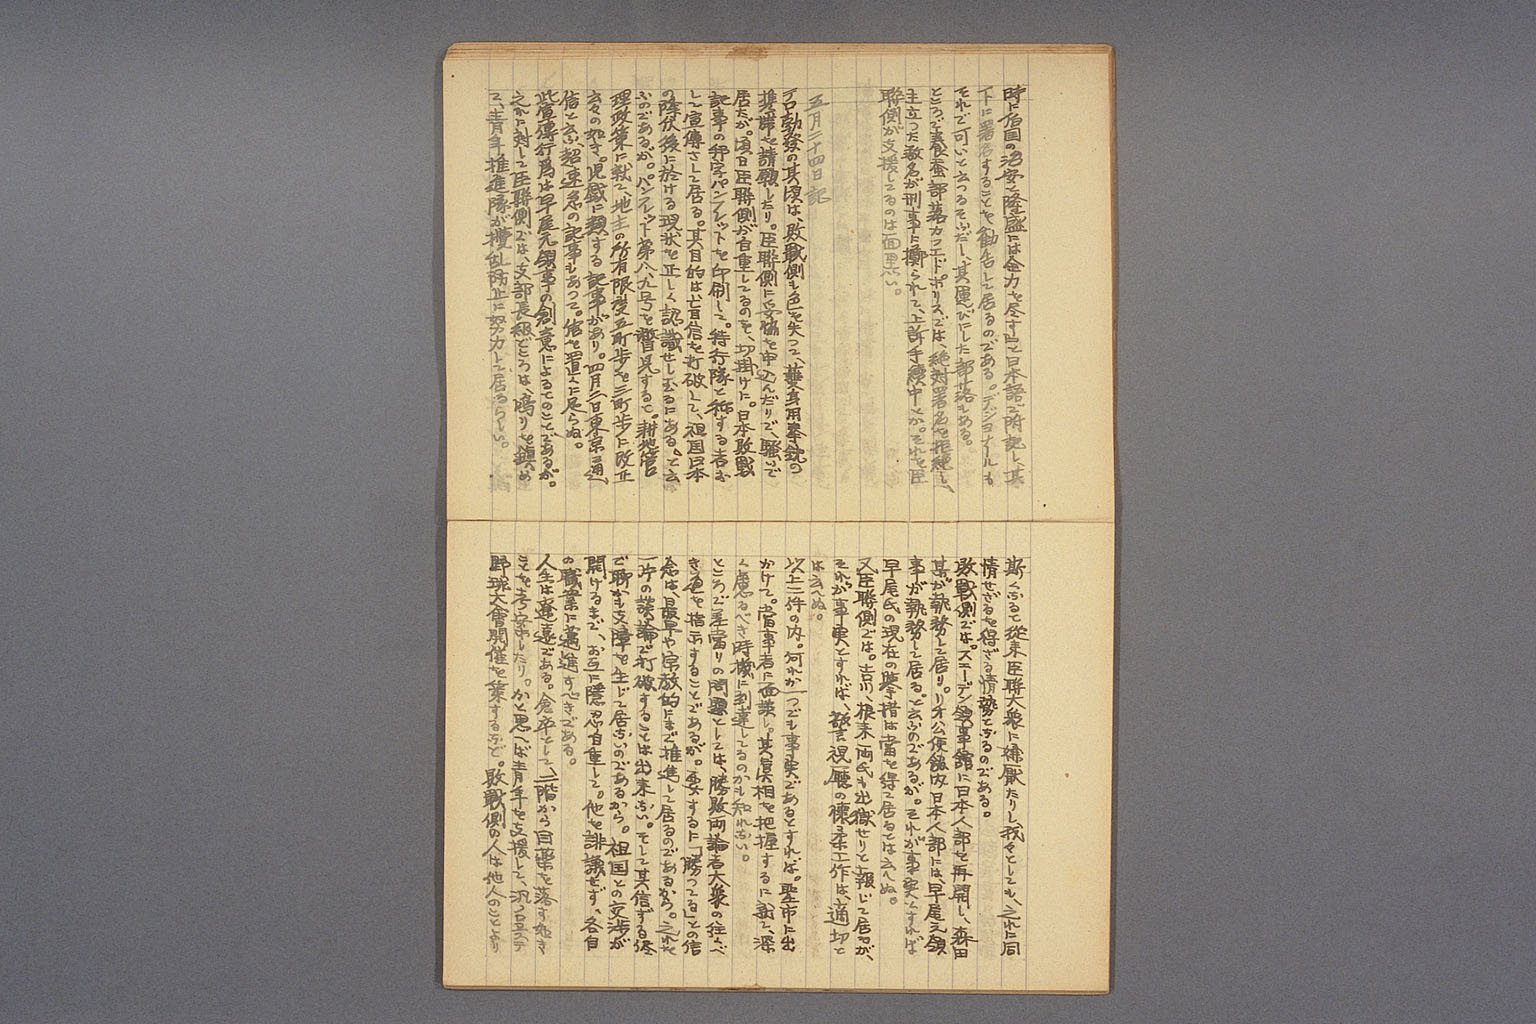 時に伯国の治安と隆盛には全力を尽す」と日本語で附記し、其
下に署名することを勧告して居るのである。デジヨナールも
それで可いと云つてるそふだし、其運びにした部落もある。
ところで養蚕部落カフエドポリスでは、絶対署名を拒絶し、
主立つた数名が刑事に擲られて、上訴手続中とか。それを臣
聯側が支援してるのは面黒い。
五月二十四日記
テロ勃発の其頃は、敗戦側も色を失つて、護身用拳銃の
携帯を請願したり。臣聯側に妥協を申込んだりで、騒いで
居たが。頃日臣聯側が自重してるのを、切掛けに。日本敗戦
記事の邦字パンフレットを印刷して。特行隊と称する者を
して宣傳さして居る。其目的は盲信を打破して、祖国日本
の降伏後に於ける現状を正しく認識せしむるにある。と云
ふのであるが。パンフレット第八、九号を瞥見するに。耕地管
理政策に就て、地主の所有限度五町歩を三町歩に改正
云々の如き。児戯に類する記事があり。四月二日東京通
信と云ふ、超速急の記事もあつて。信を置くに足らぬ。
此宣傳行為は早尾元領事の創意によるてのことであるが。
之れに対して臣聯側では、支部長級どころは、鳴りを鎮め
て、青年推進隊が擾乱防止に努力して居るらしい。
斯くなると従来臣聯大衆に嫌厭たりし我々としても、之れに同
情せざるを得ざる情勢となるのである。
敗戦側では。スエーデン領事館に日本人部を再開し、森田
某が執務して居り。リオ公使館内日本人部には、早尾元領
事が執務して居る。と云ふのであるが。それが事実とすれば
早尾氏の現在の挙措は当を得て居るとは云へぬ。
又臣聯側では。吉川、根来両氏も出獄せりと報じて居るが、
それが事実とすれば、官憲の懐柔工作は、適切と
は云へぬ。
以上二件の内。何れか一つでも事実であるとすれば。聖市に出
かけて。当事者に面談し。其真相を把握するに就て、深
く慮るべき時機に到達してるのかも知れない。
ところで差当りの問題としては、勝敗両論者大衆の往くべ
き道を指示することであるが。要するに「勝つてる」との信
念は、最早や宗教的にまで推進して居るのであるから。之れを
一片の談論で打破することは出来ない。そして其信ずる侭
で聊かも支障を生じて居ないのであるから。祖国との交渉が
開けるまで、お互に隠忍自重して。他を誹議せず、各自
の職業に邁進すべきである。
人生は遼遠である。倉卒として、二階から目薬を落す如き
ことを考案したり。かと思へば青年を支援して、汎パウリスタ
野球大會開催を策するなど。敗戦側の人は他人のことより